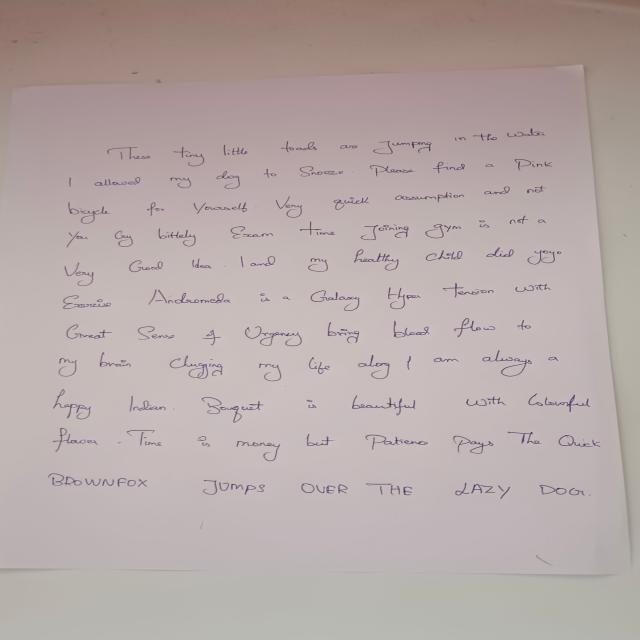 These tiny little toads are Jumping in the water
I allowed my dog to Sneeze. Please find a Pink
bicycle for Yourself. Very quick assumption and not
You Cry bitterly Exam time Joining gym is not a
Very Good Idea. I and my healthy child did yoga
Exercise Andromeda is a Galaxy Hyper tension with
Great Sense of Urgency bring blood flow to
my brain Chugging my life along I am always a
happy Indian. Bouquet is beautiful with Colourful
flavor. Time is money but Patience pays The Quick
BROWNFOX JUMPS OVER THE LAZY DOG.